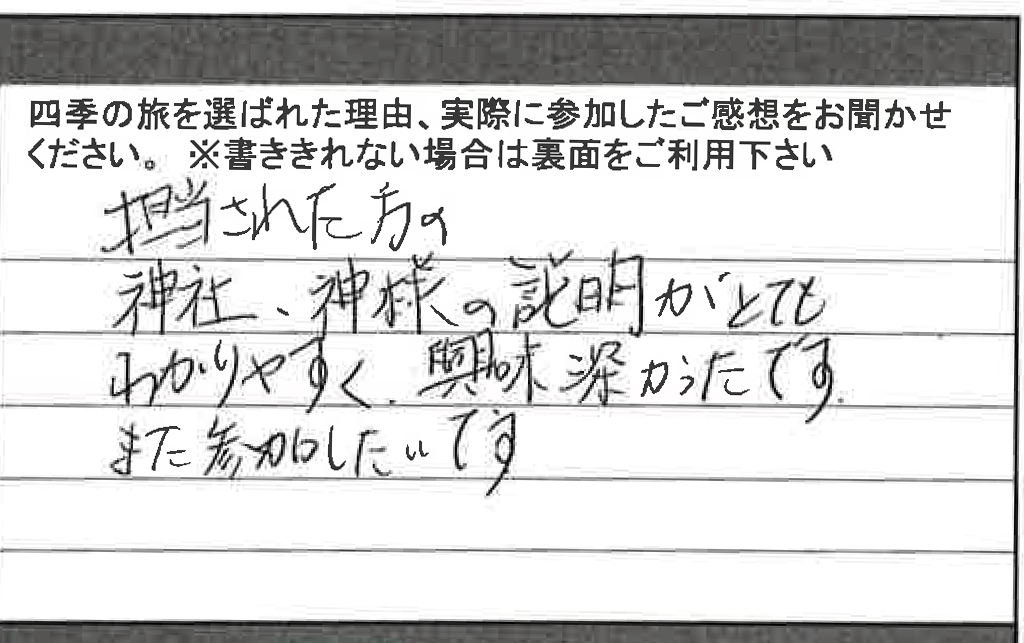 四季の旅を選ばれた理由、実際に参加したご感想をお聞かせ
ください。 ※書ききれない場合は裏面をご利用下さい
担当された方の
神社、神様の説明がとても
わかりやすく、興味深かったです。
また参加したいです